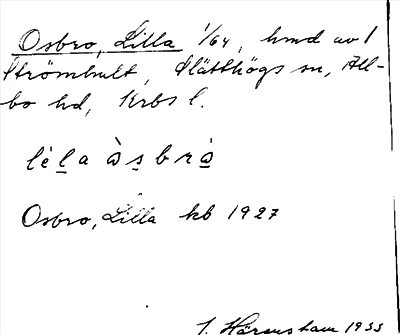 Osbro, Lilla 1/64, hmd av 1
Strömhult, Slätthögs sn, All-
bo hd, Krbs l.
lèl̲a às̲brå̲
Osbro, Lilla kb 1927
1933